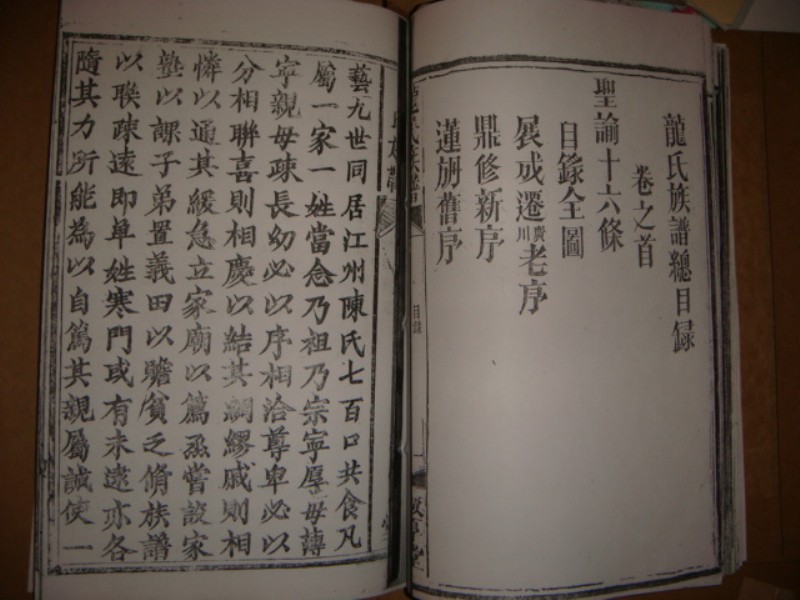 龍氏族譜總目録
卷之首
聖諭十六條
目錄全圖
展成遷廣川老序
鼎修新序
蓮舫舊序
目録
藝九世同居江州陳氏七百口共食凡
屬一家一姓當念乃祖乃宗寧厚毋薄
寧親毋疎長幼必以序相洽尊卑必以
分相聯喜則相慶以結其綢繆戚則相
憐以通其緩急立家廟以篤烝嘗設家
塾以課子弟置義田以贍貧乏脩族譜
以聯疎遠即单姓寒門或有未逮亦各
隨其力所能為以自篤其親屬誠使一